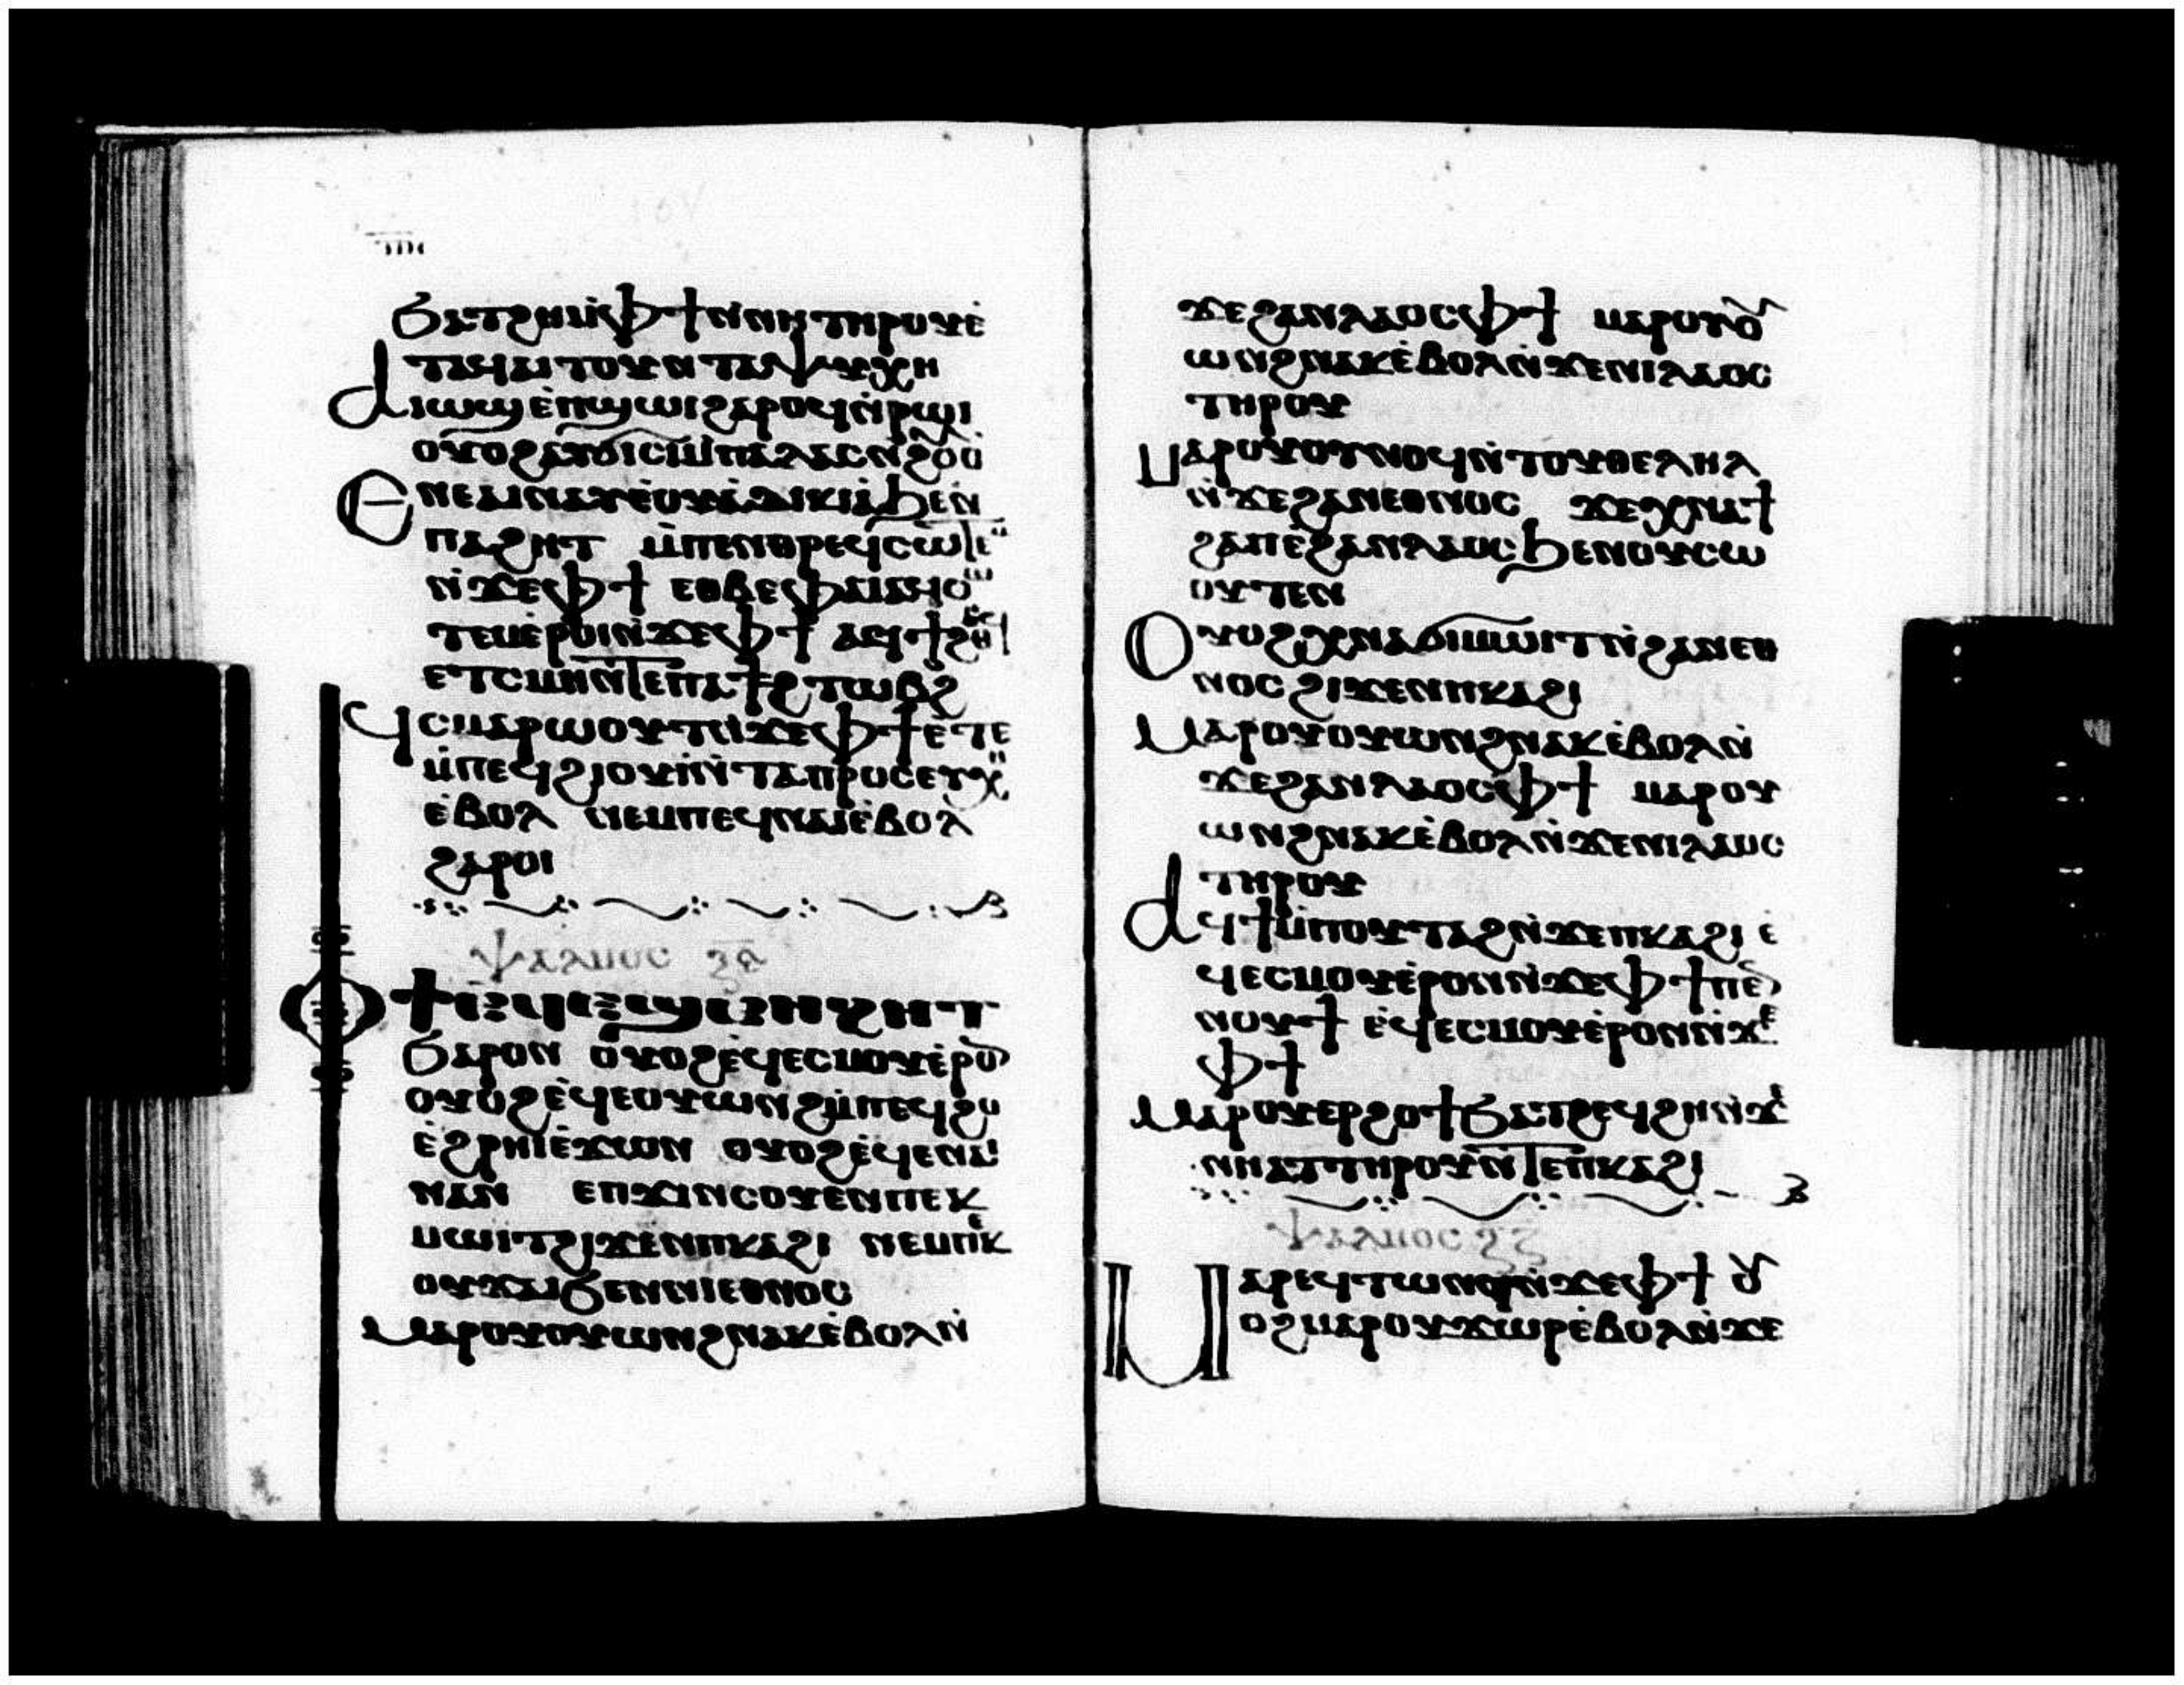 ϧⲁⲧϩⲏⲙ̀ⲫϯⲛⲛⲏⲧⲏⲣⲟⲩⲉ̀
ⲧⲁϥⲁⲓⲧⲟⲩⲛⲧⲁⲯⲩⲭⲏ
ⲁⲓⲱϣⲉ̀ⲡϣⲱⲓϩⲁⲣⲟϥⲛ̀ⲣⲱⲓ
ⲟⲩⲟϩⲁⲓϭⲓⲥⲓⲙ̀ⲡⲁⲗⲁⲥⲛ̀ϩⲟⲩ
ⲉⲛⲉⲁⲓⲛⲁⲩⲉ̀ⲟⲩⲁ̀ⲇⲓⲕⲓⲁ̀ϧⲉⲛ
ⲡⲁϩⲏⲧ ⲙ̀ⲡⲉⲛⲑⲣⲉϥⲥⲱⲧⲉ
ⲛ̀ϫⲉⲫϯ ⲉⲑⲃⲉⲫⲁⲓⲁϥⲥⲱ
ⲧⲉⲙⲉ̀ⲣⲟⲓⲛ̀ϫⲉⲫϯ ⲁϥϯϩⲏ
ⲉⲧⲥⲙⲏⲛ̀ⲧⲉⲡⲁϯϩⲧⲱⲃϩ
ϥⲥⲙⲁⲣⲱⲟⲩⲧⲛ̀ϫⲉⲫϯⲉ̀ⲧⲉ
ⲙ̀ⲡⲉϥϩⲓⲟⲩⲓⲛ̀ⲧⲁⲡⲣⲟⲥⲉⲩⲭⲏ
ⲉ̀ⲃⲟⲗ ⲛⲉⲙⲡⲉϥⲛⲁⲓⲉ̀ⲃⲟⲗ
ϩⲁⲣⲟⲓ
ⲯⲁⲗⲙⲟⲥ
ⲫϯⲉϥⲉϣⲉⲛϩⲏⲧ
ϧⲁⲣⲟⲛ ⲟⲩⲟϩⲉ̀ϥⲉⲥⲙⲟⲩⲉ̀ⲣⲟ
ⲟⲩⲟϩⲉ̀ϥⲉⲟⲩⲱⲛϩⲙ̀ⲡⲉϥϩⲟ
ⲉ̀ϩⲣⲏⲓⲉ̀ϫⲱⲛ ⲟⲩⲟϩⲉ̀ϥⲉⲛⲁⲓ
ⲛⲁⲛ ⲉⲡϫⲓⲛⲥⲟⲩⲉⲛⲡⲉⲕ
ⲙⲱⲓⲧϩⲓϫⲉⲛⲡⲕⲁϩⲓ ⲛⲉⲙⲡⲉⲕ
ⲟⲩϫⲁⲓϧⲉⲛⲛⲓⲉⲑⲛⲟⲥ
ⲙⲁⲣⲟⲩⲟⲩⲱⲛϩⲛⲁⲕⲉ̀ⲃⲟⲗⲛ̀
ϫⲉϩⲁⲛⲗⲁⲟⲥⲫϯ ⲙⲁⲣⲟⲩⲟⲩ
ⲱⲛϩⲛⲁⲕⲉ̀ⲃⲟⲗⲛ̀ϫⲉⲛⲓⲗⲁⲟⲥ
ⲧⲏⲣⲟⲩ
ⲙⲁⲣⲟⲩⲟⲩⲛⲟϥⲛ̀ⲧⲟⲩⲑⲉⲗⲏⲗ
ⲛ̀ϫⲉϩⲁⲛⲉⲑⲛⲟⲥ ϫⲉⲭⲛⲁϯ
ϩⲁⲡⲉ̀ϩⲁⲛⲗⲁⲟⲥϧⲉⲛⲟⲩⲥⲱ
ⲟⲩⲧⲉⲛ
ⲟⲩⲟϩⲭⲛⲁϭⲓⲙⲱⲓⲧⲛ̀ϩⲁⲛⲉⲑ
ⲛⲟⲥϩⲓϫⲉⲛⲡⲕⲁϩⲓ
ⲙⲁⲣⲟⲩⲟⲩⲱⲛϩⲛⲁⲕⲉ̀ⲃⲟⲗⲛ̀
ϫⲉϩⲁⲛⲗⲁⲟⲥⲫϯ ⲙⲁⲣⲟⲩ
ⲱⲛϩⲛⲁⲕⲉ̀ⲃⲟⲗⲛ̀ϫⲉⲛⲓⲗⲁⲟⲥ
ⲧⲏⲣⲟⲩ
ⲁϥϯⲙ̀ⲡⲟⲩⲧⲁϩⲛ̀ϫⲉⲡⲕⲁϩⲓ ⲉ̀
ϥⲉⲥⲙⲟⲩⲉ̀ⲣⲟⲛⲛ̀ϫⲉⲫϯⲡⲉⲛ
ⲛⲟⲩϯ ⲉ̀ϥⲉⲥⲙⲟⲩⲉ̀ⲣⲟⲛⲛ̀ϫⲉ
ⲫϯ
ⲙⲁⲣⲟⲩⲉⲣϩⲟϯϧⲁⲧϩⲉϥϩⲏⲛ̀ϫⲉ
ⲛⲏⲁⲩⲧⲏⲣⲟⲩⲛ̀ⲧⲉⲡⲕⲁϩⲓ
ⲯⲁⲗⲙⲟⲥ ⲝⲍ
ⲙⲁⲣⲉϥⲧⲱⲛϥⲛ̀ϫⲉⲫϯ ⲟⲩ
ⲟϩⲙⲁⲣⲟⲩϫⲱⲣⲉ̀ⲃⲟⲗⲛ̀ϫⲉ